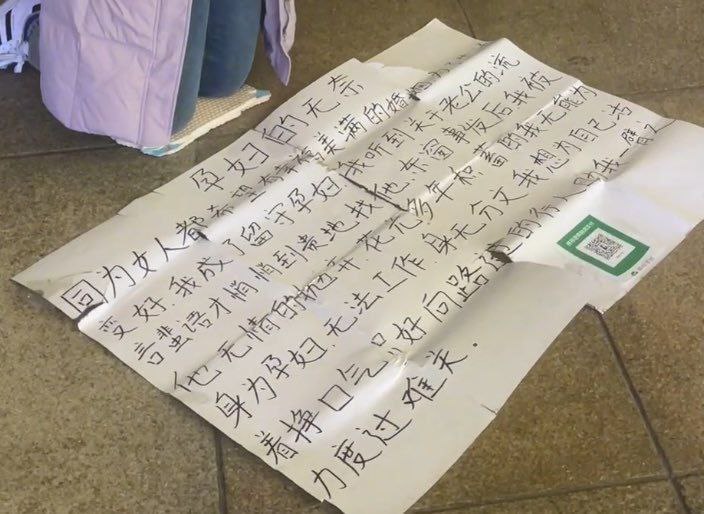 孕妇的无奈
因为女人都希望 美满的婚姻
变好 我成了留守孕妇 我听到关于老公的流
言蜚语才悄悄到贵地找他 东窗事发后我被
他无情的抛弃.花光多年积蓄的我无能为
身为孕妇.无法工作 身无分文 我想为自己活
着挣口气 只好向路 的行人助我一臂之
力度过难关.